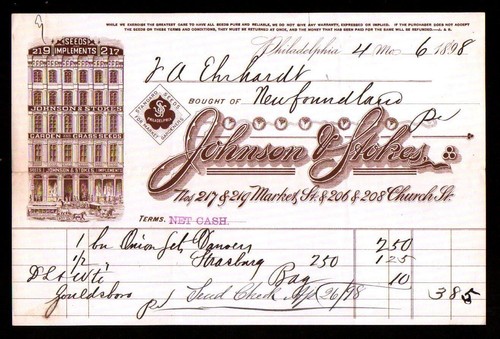 WHILE WE EXERCISE THE GREATEST CARE TO HAVE ALL SEEDS PURE AND RELIABLE, WE DO NOT GIVE ANY WARRANTY, EXPRESSED OR IMPLIED. IF THE PURCHASER DOES NOT ACCEPT
THE SEEDS ON THESE TERMS AND CONDITIONS, THEY MUST BE RETURNED AT ONCE, AND THE MONEY THAT HAS BEEN PAID FOR THE SAME WILL BE REFUNDED.—J. & S.
Philadelphia 4 Mo 6 1898
SEEDS
219 IMPLEMENTS 217
JOHNSON & STOKES
GARDEN AND GRASS SEEDS
SEEDS JOHNSON & STOKES IMPLEMENTS
J A Ehrhardt
BOUGHT OF Newfoundland Pa
STANDARD SEEDS
PHILADELPHIA
FOR MARKET GARDENERS
Johnson & Stokes,
Nos. 217 & 219 Market St. & 206 & 208 Church St.
TERMS: NET CASH.
1 bu Onion Set, Danvers 250
1/2 " " Strasburg 250 125
Bag 10
Gouldsboro Pa Send Check Apl 26/98 385